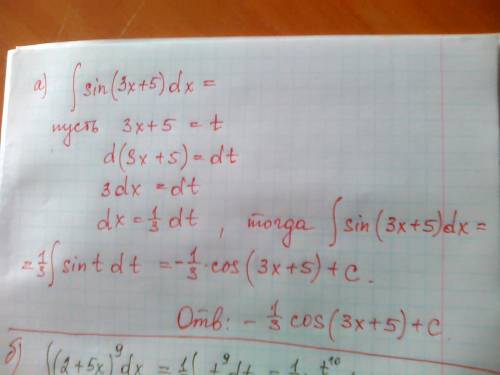 а) ∫ sin(3x+5)dx =
пусть 3x+5 = t
d(3x+5) = dt
3dx = dt
dx = 1/3 dt , тогда ∫ sin(3x+5)dx =
= 1/3 ∫ sin t dt = -1/3 · cos(3x+5) + C.
Отв: - 1/3 cos(3x+5) + C
б) ∫(2+5x)⁹dx = 1/5 ∫ t⁹dt = 1/5 · t¹⁰